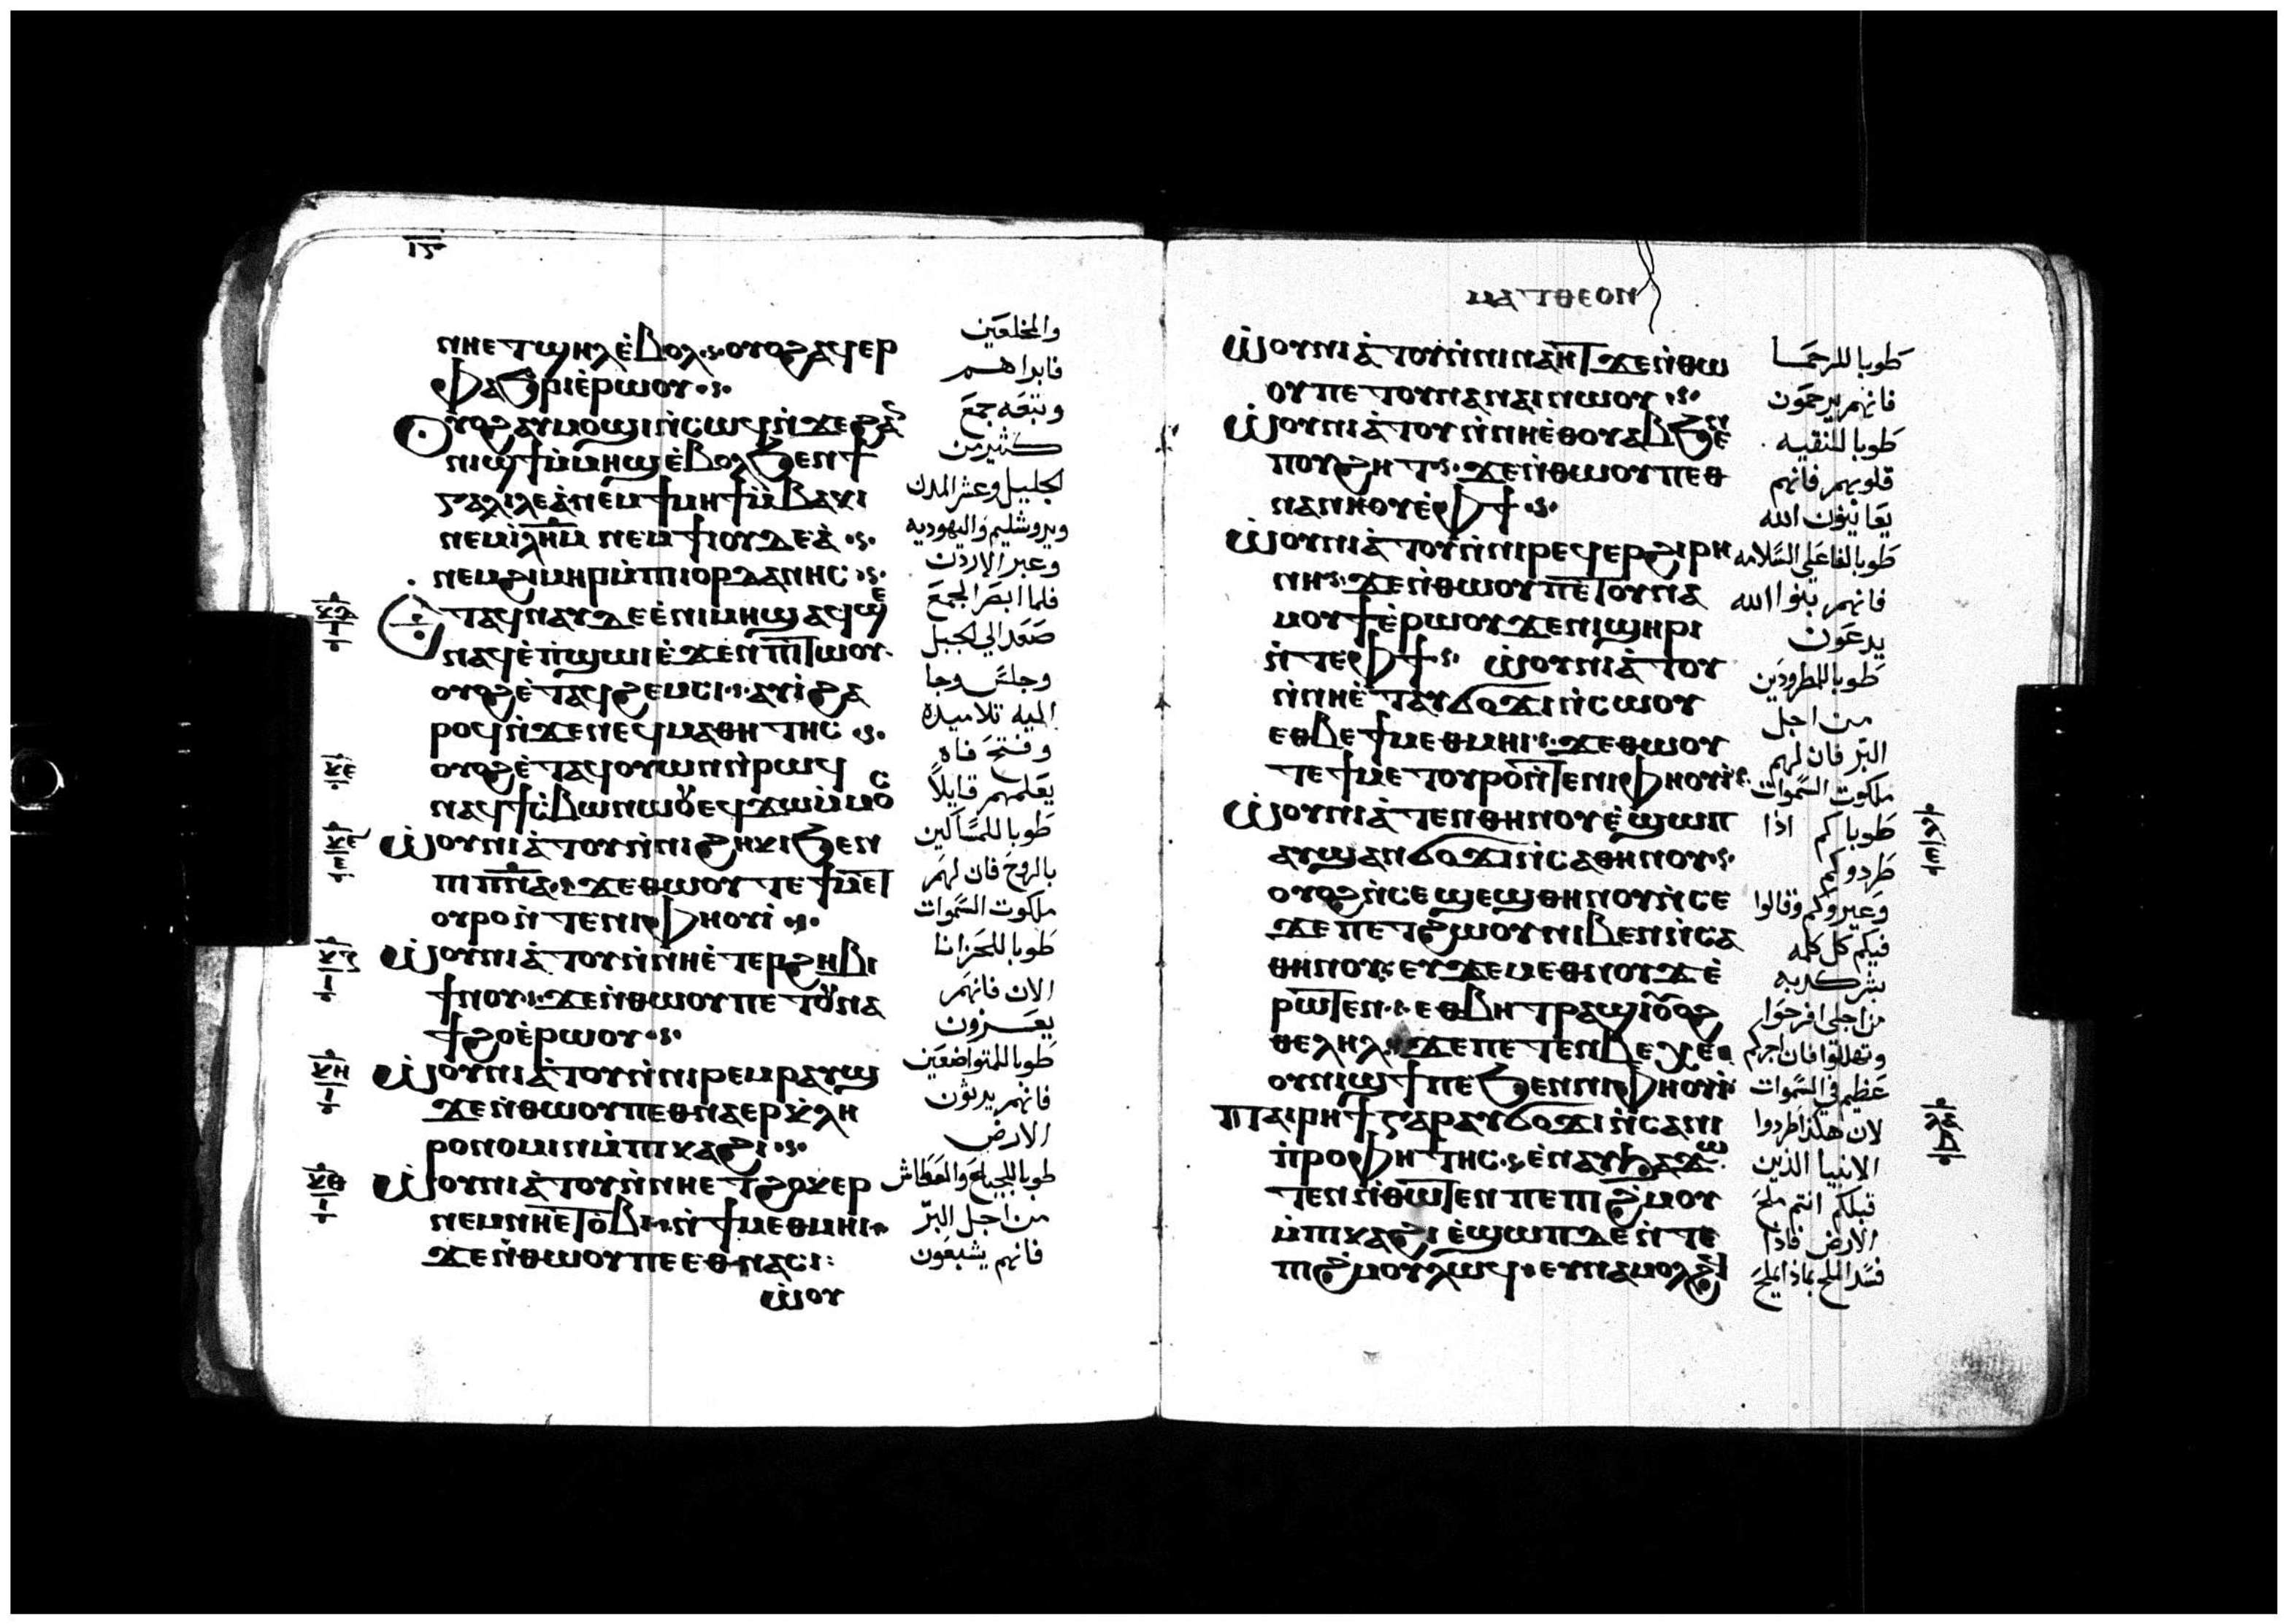 ⲛⲏⲉⲧϣⲏⲗⲉ̀ⲃⲟⲗ·ⲟⲩⲟϩⲁϥⲉⲣ
ⲫⲁϧⲣⲓⲉ̀ⲣⲱⲟⲩ
ⲟⲩⲟϩⲁⲩⲙⲟϣⲓⲛ̀ⲥⲱϥⲛ̀ϫⲉϩⲁ
ⲛⲓϣϯⲙ̀ⲙⲏϣⲉ̀ⲃⲟⲗϧⲉⲛϯ
ⲅⲁⲗⲓⲗⲉⲁ̀ⲛⲉⲙϯⲙⲏϯⲙ̀ⲃⲁⲕⲓ
ⲛⲉⲙⲓ̀ⲗⲏⲙ ⲛⲉⲙϯⲓⲟⲩⲇⲉⲁ̀
ⲛⲉⲙϩⲓⲙⲏⲣⲙ̀ⲡⲓⲟⲣⲇⲁⲛⲏⲥ
ⲉⲧⲁϥⲛⲁⲩⲇⲉⲉ̀ⲛⲓⲙⲏϣⲁϥϣⲉ
ⲛⲁϥⲉ̀ⲡ̀ϣⲱⲓⲉ̀ϫⲉⲛⲡⲓⲧⲱⲟⲩ
ⲟⲩⲟϩⲉ̀ⲧⲁϥϩⲉⲙⲥⲓ·ⲁⲩⲓ̀ϩⲁ
ⲣⲟϥⲛ̀ϫⲉⲛⲉϥⲙⲁⲑⲏⲧⲏⲥ
ⲟⲩⲟϩⲉ̀ⲧⲁϥⲟⲩⲱⲛⲛ̀ⲣⲱϥ
ⲛⲁϥϯⲥ̀ⲃⲱⲛⲱⲟⲩⲉϥϫⲱⲙ̀ⲙⲟⲥ
ⲱ̀ⲟⲩⲛⲓⲁ̀ⲧⲟⲩⲛ̀ⲛⲓϩⲏⲕⲓϧⲉⲛ
ⲡⲓⲡ̅ⲛ̅ⲁ̅·ϫⲉⲑⲱⲟⲩⲧⲉϯⲙⲉⲧ
ⲟⲩⲣⲟⲛ̀ⲧⲉⲛⲓⲫⲏⲟⲩⲓ̀
ⲱ̀ⲟⲩⲛⲓⲁ̀ⲧⲟⲩⲛ̀ⲛⲏⲉ̀ⲧⲉⲣϩⲏⲃⲓ
ϯⲛⲟⲩ·ϫⲉⲛ̀ⲑⲱⲟⲩⲡⲉⲧⲟⲩⲛⲁ
ϯϩⲟⲉ̀ⲣⲱⲟⲩ
ⲱ̀ⲟⲩⲛⲓⲁ̀ⲧⲟⲩⲛ̀ⲛⲓⲣⲉⲙⲣⲁⲩϣ
ϫⲉⲛ̀ⲑⲱⲟⲩⲡⲉⲑⲛⲁⲉⲣⲕ̀ⲗⲏ
ⲣⲟⲛⲟⲙⲓⲛⲙ̀ⲡⲓⲕⲁϩⲓ
ⲱ̀ⲟⲩⲛⲓⲁ̀ⲧⲟⲩⲛ̀ⲛⲏⲉⲧϩⲟⲕⲉⲣ
ⲛⲉⲙⲛⲏⲉⲧⲟ̀ⲃⲓ·ⲛ̀ϯⲙⲉⲑⲙⲏⲓ
ϫⲉⲛ̀ⲑⲱⲟⲩⲡⲉⲉⲑⲛⲁⲥⲓ:
ⲱ̀ⲟⲩ
والمخلعين
فابراهم
وتبعه جمع
كثير من
الجليل وعشر المدن
ويروشليم واليهوديه
وعبر الاردن
فلما ابصر الجمع
صعد الي الجبل
وجلس وجا
اليه تلاميده
وفتح فاه
يعلمهم قايلاً
طوبا للمساكين
بالروح فان لهم
ملكوت السموات
طوبا للحزانا
الان فانهم
يعزون
طوبا للمتواضعين
فانهم يرثون
الارض
طوبا للجياع والعطاش
من اجل البر
فانهم يشبعون
ⲙⲁⲧⲑⲉⲟⲛ
ⲱ̀ⲟⲩⲛⲓⲁ̀ⲧⲟⲩⲛ̀ⲛⲓⲛⲁⲏⲧϫⲉⲛ̀ⲑⲱ
ⲟⲩⲡⲉⲧⲟⲩⲛⲁⲛⲁⲓⲛⲱⲟⲩ
ⲱ̀ⲟⲩⲛⲓⲁ̀ⲧⲟⲩⲛ̀ⲛⲏⲉ̀ⲑⲟⲩⲁⲃϧⲉⲛ
ⲡⲟⲩϩⲏⲧ·ϫⲉⲛ̀ⲑⲱⲟⲩⲡⲉⲑ
ⲛⲁⲛⲏⲟⲩⲉ̀ⲫϯ
ⲱ̀ⲟⲩⲛⲓⲁ̀ⲧⲟⲩⲛ̀ⲛⲓⲣⲉϥⲉⲣϩⲓⲣⲏ
ⲛⲏ·ϫⲉⲛ̀ⲑⲱⲟⲩⲡⲉⲧⲟⲩⲛⲁ
ⲙⲟⲩϯⲉ̀ⲣⲱⲟⲩϫⲉⲛⲓϣⲏⲣⲓ
ⲛ̀ⲧⲉⲫϯ· ⲱ̀ⲟⲩⲛⲓⲁ̀ⲧⲟⲩ
ⲛ̀ⲛⲏⲉ̀ⲧⲁⲩϭⲟϫⲓⲛ̀ⲥⲱⲟⲩ
ⲉⲑⲃⲉϯⲙⲉⲑⲙⲏⲓ·ϫⲉⲑⲱⲟⲩ
ⲧⲉϯⲙⲉⲧⲟⲩⲣⲟⲛ̀ⲧⲉⲛⲓⲫⲏⲟⲩⲓ̀
ⲱ̀ⲟⲩⲛⲓⲁ̀ⲧⲉⲛⲑⲏⲛⲟⲩⲉ̀ϣⲱⲡ
ⲁⲩϣⲁⲛϭⲟϫⲓⲛ̀ⲥⲁⲑⲏⲛⲟⲩ
ⲟⲩⲟϩⲛ̀ⲥⲉϣⲉϣⲑⲏⲛⲟⲩⲛ̀ⲥⲉ
ϫⲉⲡⲉⲧϩⲱⲟⲩⲛⲓⲃⲉⲛⲛ̀ⲥⲁ
ⲑⲏⲛⲟⲩ·ⲉⲩϫⲉⲙⲉⲑⲛⲟⲩϫⲉ̀
ⲣⲱⲧⲉⲛ·ⲉⲑⲃⲏⲧⲣⲁϣⲓⲟⲩⲟϩ
ⲑⲉⲗⲏⲗ·ϫⲉⲡⲉⲧⲉⲛⲃⲉⲭⲉ
ⲟⲩⲛⲓϣϯⲡⲉϧⲉⲛⲛⲓⲫⲏⲟⲩⲓ̀
ⲡⲁⲓⲣⲏϯⲅⲁⲣⲁⲩϭⲟϫⲓⲛ̀ⲥⲁⲛⲓ
ⲡ̀ⲣⲟⲫⲏⲧⲏⲥ·ⲉⲛⲁⲩϧⲁϫⲱ
ⲧⲉⲛⲛ̀ⲑⲱⲧⲉⲛⲡⲉⲡⲓϩ̀ⲙⲟⲩ
ⲙ̀ⲡⲓⲕⲁϩⲓⲉ̀ϣⲱⲡⲇⲉⲛ̀ⲧⲉ
ⲡⲓϩ̀ⲙⲟⲩⲗⲱϥ·ⲉⲩⲛⲁⲙⲟⲗϩϥ
طوبا للرحما
فانهم يرحمون
طوبا للنقيه
قلوبهم فانهم
يعاينون الله
طوبا لفاعلي السلامه
فانهم بنوا الله
يدعون
طوبا للمطرودين
من اجل
البر فان لهم
ملكوت السموات
طوباكم اذا
طردوكم
وعيروكم وقالوا
فيكم كل كلمه
شر كدبه
من اجلي افرحوا
وتهللوا فان اجركم
عظيم في السموات
لان هكذا طردوا
الانبيا الذين
قبلكم انتم ملح
الارض فاذا
فسد الملح بماذا يملح